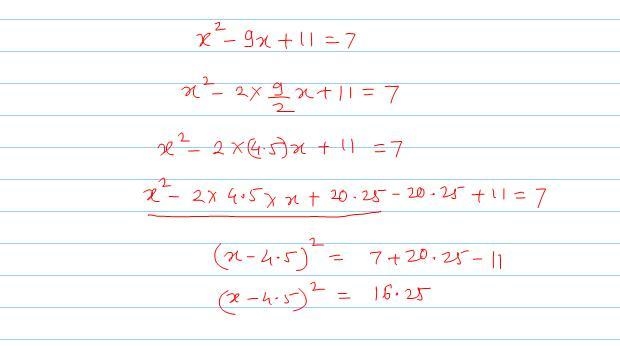 x² - 9x + 11 = 7
x² - 2 × 9/2 x + 11 = 7
x² - 2 × (4.5) x + 11 = 7
x² - 2 × 4.5 × x + 20.25 - 20.25 + 11 = 7
(x - 4.5)² = 7 + 20.25 - 11
(x - 4.5)² = 16.25